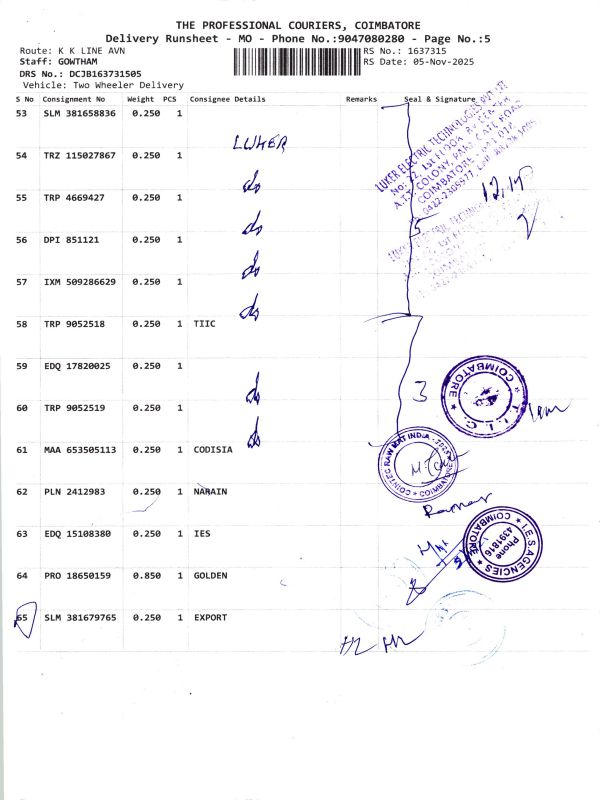 THE PROFESSIONAL COURIERS, COIMBATORE
Delivery Runsheet - MO - Phone No.:9047080280 - Page No.:5
Route: K K LINE AVN
RS No.: 1637315
Staff: GOWTHAM
RS Date: 05-Nov-2025
DRS No.: DCJB163731505
Vehicle: Two Wheeler Delivery
S No Consignment No Weight PCS Consignee Details Remarks Seal & Signature
53 SLM 381658836 0.250 1
LUKER
54 TRZ 115027867 0.250 1
do
55 TRP 4669427 0.250 1
do
56 DPI 851121 0.250 1
do
57 IXM 509286629 0.250 1
do
58 TRP 9052518 0.250 1 TIIC
59 EDQ 17820025 0.250 1
do
60 TRP 9052519 0.250 1
do
61 MAA 653505113 0.250 1 CODISIA
62 PLN 2412983 0.250 1 NARAIN
63 EDQ 15108380 0.250 1 IES
64 PRO 18650159 0.850 1 GOLDEN
65 SLM 381679765 0.250 1 EXPORT
LUKER ELECTRIC TECHNOLOGIES PVT LTD
A.T.T. COLONY,
COIMBATORE
5
3
T.I.I.C.
COIMBATORE
COINTEC RAW MAT INDIA - 2025
COIMBATORE
I.E.S AGENCIES
Phone
4391816
COIMBATORE